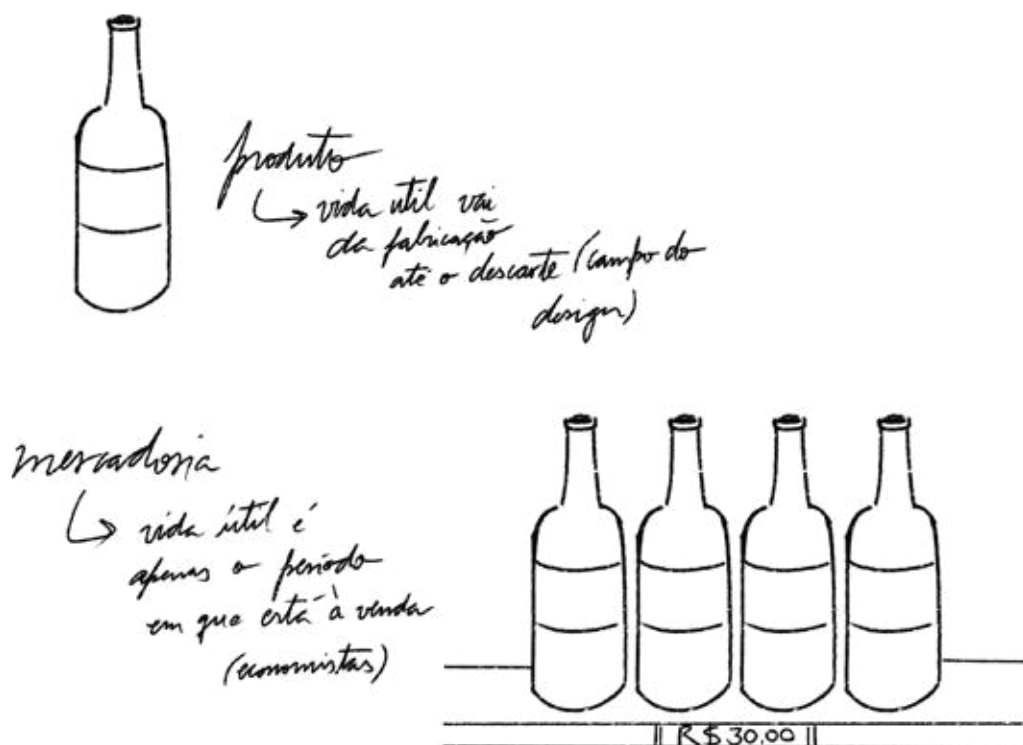 produto
vida util vai
da fabricação
até o descarte (campo do
design)
mercadoria
vida útil é
apenas o período
em que está à venda
(economistas)
R$30,00